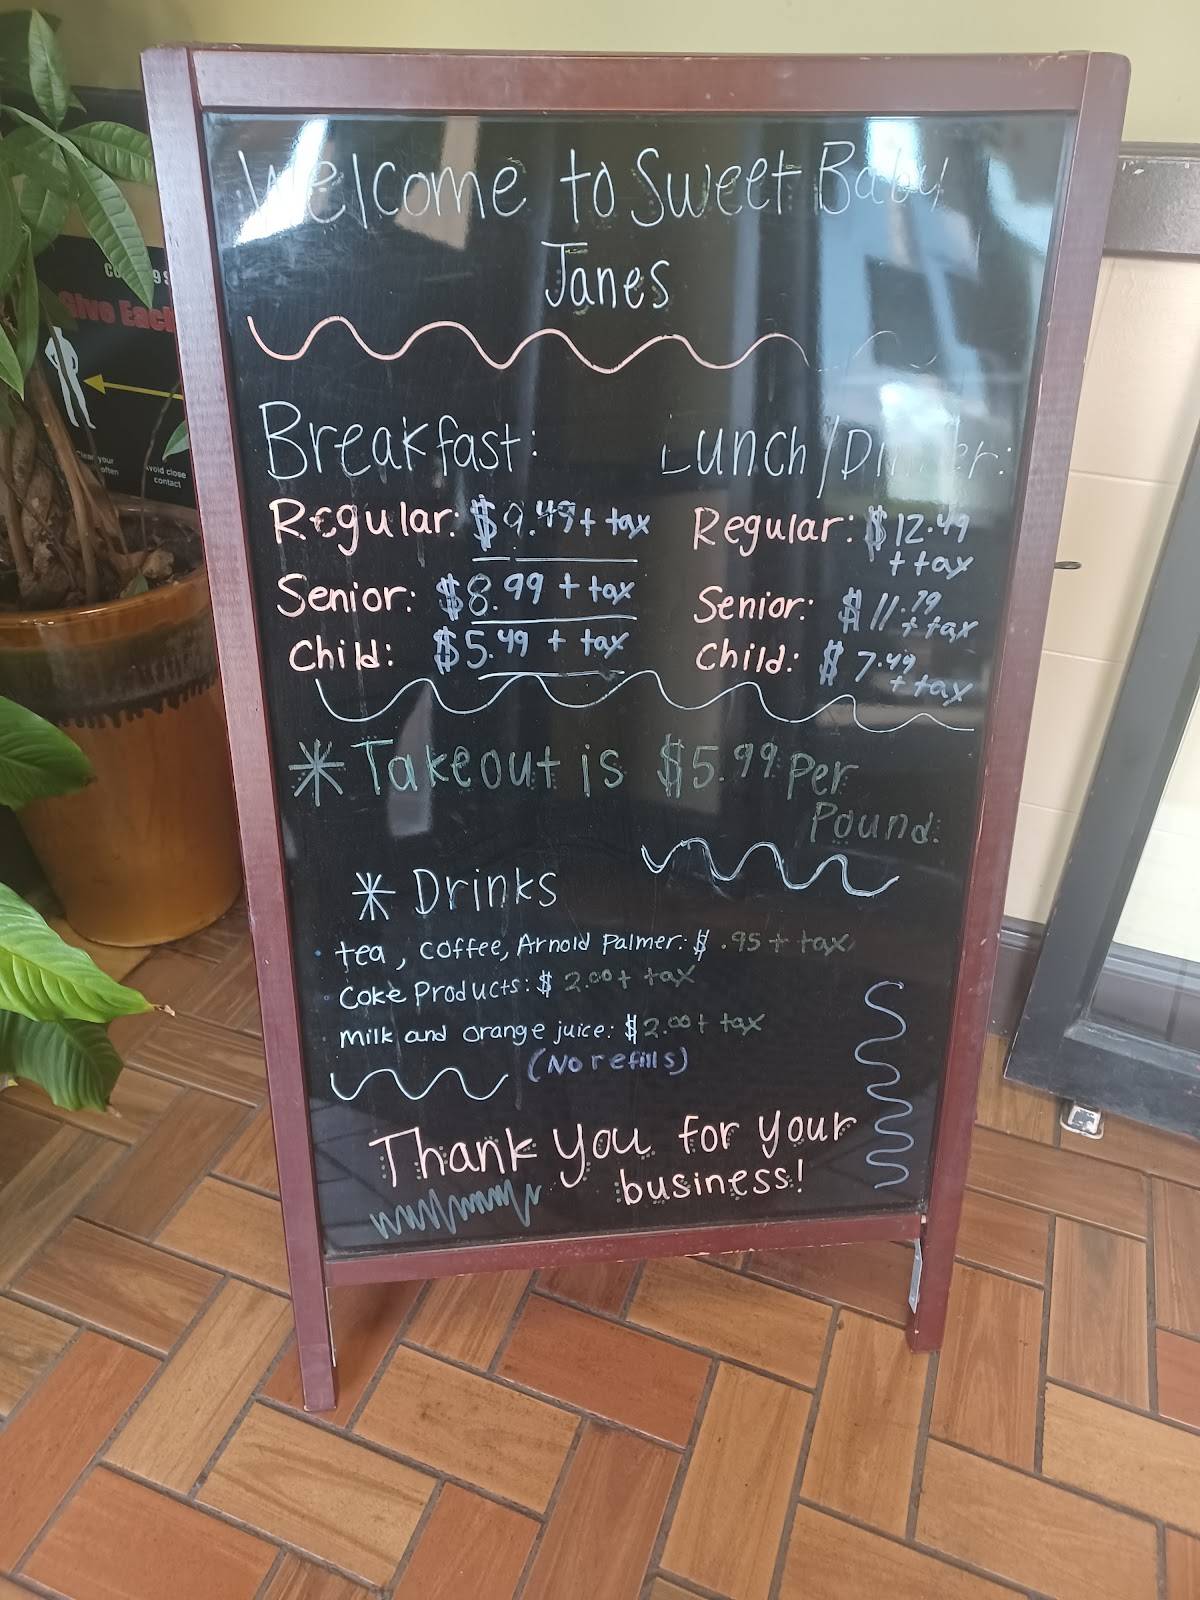 Welcome to Sweet Baby
Janes
Breakfast:
Regular: $9.49 + tax
Senior: $8.99 + tax
Child: $5.49 + tax
Lunch/Dinner:
Regular: $12.49
+ tax
Senior: $11.79
+ tax
Child: $7.49
+ tax
* Takeout is $5.99 Per
Pound.
* Drinks
· tea, coffee, Arnold Palmer: $.95 + tax
· Coke Products: $2.00 + tax
· milk and orange juice: $2.00 + tax
(No refills)
Thank you for your
business!
Give Each
Clear your
often
Avoid close
contact